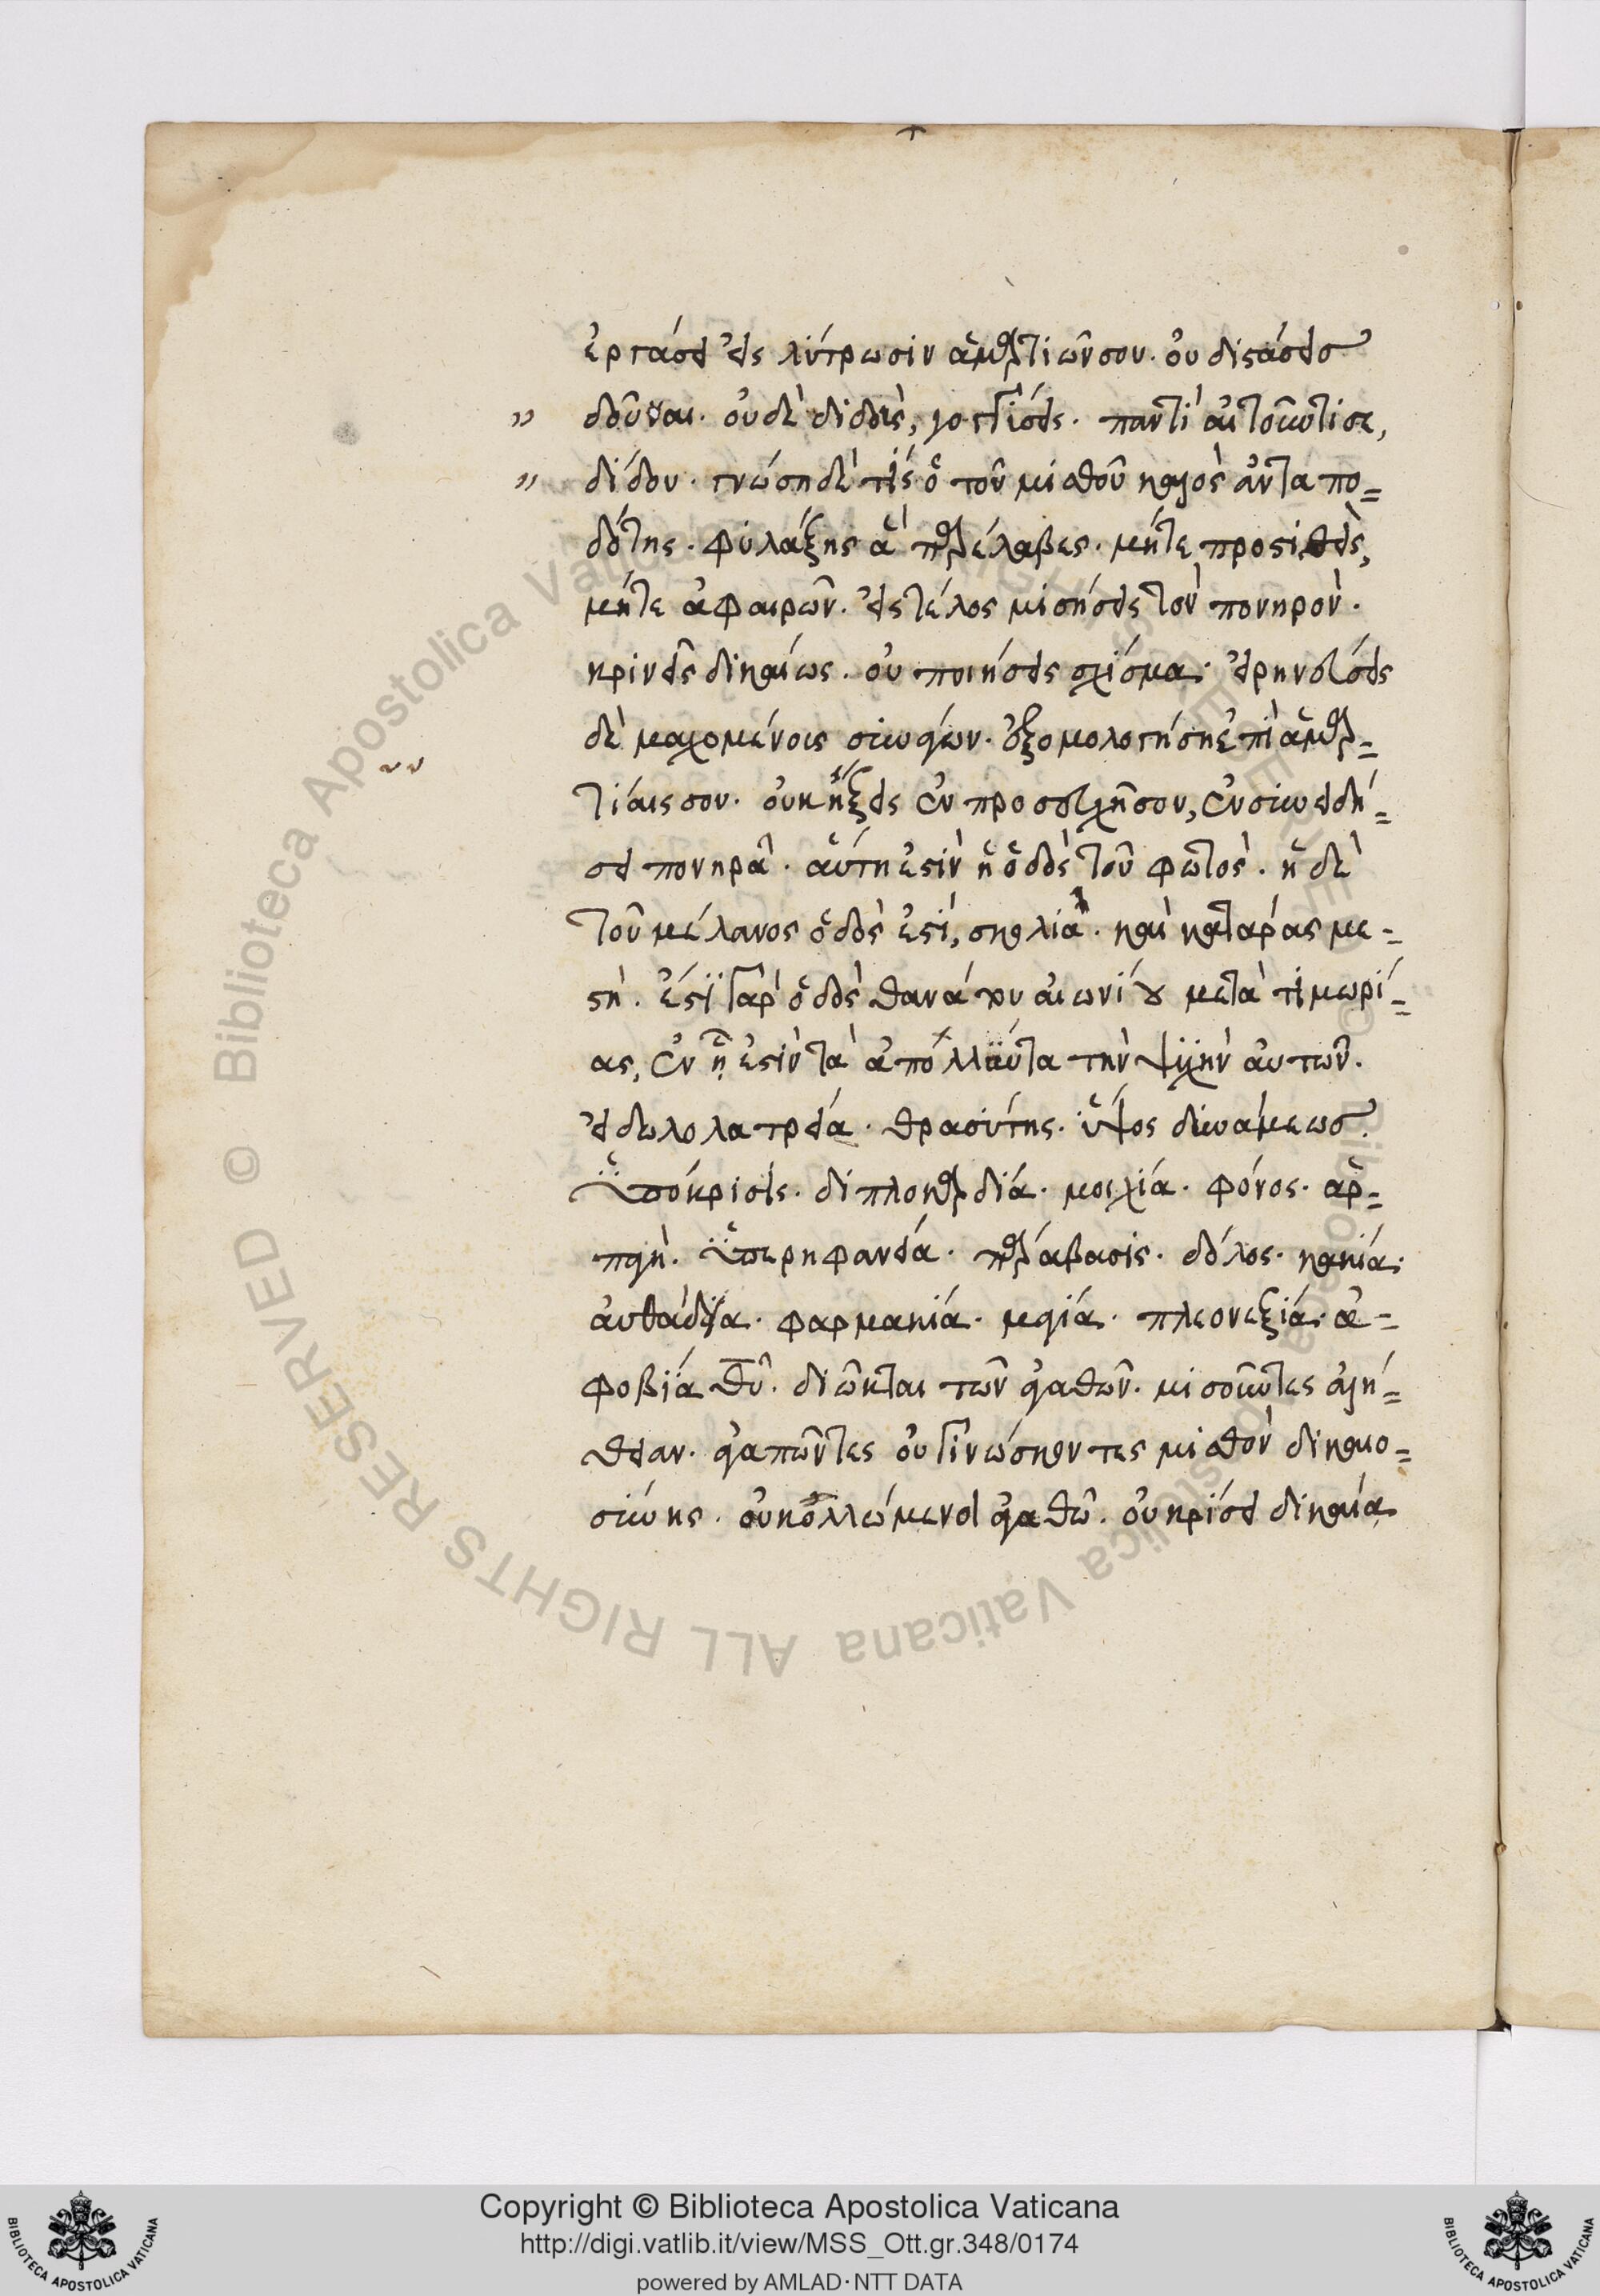 ἐργάσει εἰς λύτρωσιν ἁμαρτιῶν σου. οὐ διστάσεις
δοῦναι. οὐδὲ διδοὺς, γογγύσεις. παντὶ αἰτοῦντί σε,
δίδου. γνώσῃ δὲ τίς ὁ τοῦ μισθοῦ καλὸς ἀνταπο=
δότης. φυλάξῃς ἃ παρέλαβες. μήτε προστιθεὶς,
μήτε ἀφαιρῶν. εἰς τέλος μισήσεις τὸν πονηρὸν.
κρινεῖς δικαίως. οὐ ποιήσεις σχίσμα. εἰρηνεύσεις
δὲ μαχομένοις συναγών. ἐξομολογήσῃ ἐπὶ ἁμαρ=
τίαις σου. οὐκ ἥξεις ἐν προσευχῇ σου, ἐν συνειδή=
σει πονηρᾷ. αὕτη ἐστὶν ἡ ὁδὸς τοῦ φωτὸς. ἡ δὲ
τοῦ μέλανος ὁδὸς ἐστί, σκολιὰ. καὶ κατάρας με=
στὴ. ἔστι γὰρ ὁδὸς θανάτου αἰωνίου μετὰ τιμωρί=
ας, ἐν ᾗ ἐστὶν τὰ ἀπολλύντα τὴν ψυχὴν αὐτῶν.
εἰδωλολατρεία. θρασύτης. ὕψος δυνάμεως.
ὑπόκρισις. διπλοκαρδία. μοιχία. φόνος. ἁρ=
παγὴ. ὑπερηφανεία. παράβασις. δόλος. κακία.
αὐθάδεια. φαρμακία. μαγία. πλεονεξία. ἀ=
φοβία θῦ. διῶκται τῶν ἀγαθῶν. μισοῦντες ἀλή=
θειαν. ἀγαπῶντες οὐ γινώσκοντες μισθὸν δικαιο=
σύνης. οὐ κολλώμενοι ἀγαθῷ. οὐ κρίσει δικαίᾳ
Copyright © Biblioteca Apostolica Vaticana
http://digi.vatlib.it/view/MSS_Ott.gr.348/0174
powered by AMLAD·NTT DATA
© Biblioteca Apostolica Vaticana ALL RIGHTS RESERVED
BIBLIOTECA APOSTOLICA VATICANA
BIBLIOTECA APOSTOLICA VATICANA